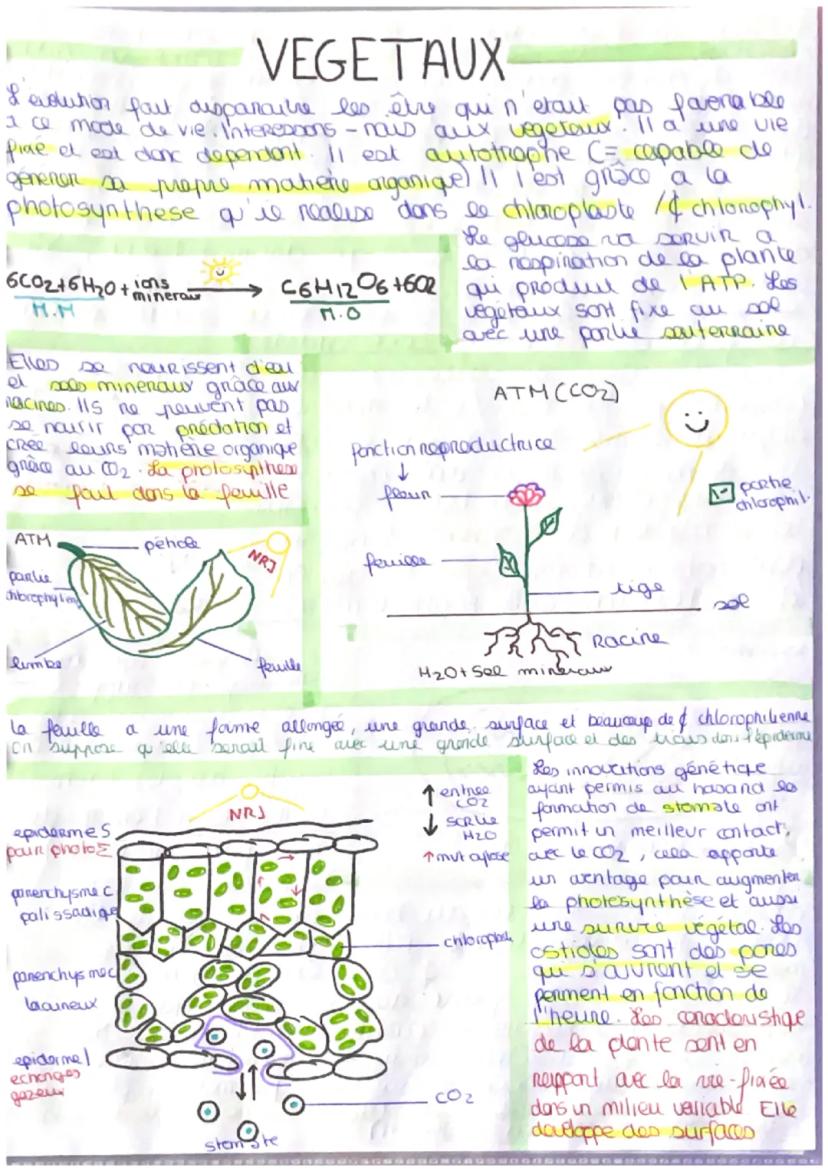 VEGETAUX
L'évolution fait disparaitre les être qui n'était pas favorable
à ce mode de vie. Interessons-nous aux végétaux. Il a une vie
fixé et est donc dépendant. Il est autotrophe (= capable de
génerer sa propre matière organique) Il l'est grâce à la
photosynthèse qu'il réalise dans le chloroplaste / ¢ chlorophyl.
Le glucose va servir à
la respiration de la plante
qui produit de l'ATP. Les
végétaux sont fixé au sol
avec une partie souterraine
6CO2+6H2O+ ions
mineraux
C6H12O6+6O2
M.M
M.O
Elles se nourissent d'eau
et sels mineraux grâce aux
racines. Ils ne peuvent pas
se nourir par prédation et
crée leurs matière organique
grâce au CO2. La photosynthèse
se fait dans la feuille
ATM (CO2)
fonction reproductrice
fleur
feuille
tige
sol
Racine
H2O + Sel mineraux
partie
chlorophil.
ATM
pétiole
NRJ
partie
chlorophylien
limbe
feuille
la feuille a une forme allongée, une grande surface et beaucoup de ¢ chlorophilienne
On suppose qu'elle serait fine avec une grande surface et des trous dans l'épiderme
NRJ
entrée
CO2
sortie
H2O
mvt cyclose
epiderme S
pour photo Σ
parenchysme C
palissadique
chloroph
parenchysme C
lacuneux
epiderme I
echanges
gazeux
CO2
stomate
Les innovations génétique
ayant permis au hasard la
formation de stomate ont
permit un meilleur contact,
avec le CO2, cela apporte
un aventage pour augmenter
la photosynthèse et aussi
une survie végétal. Les
ostioles sont des pores
qui s'ouvrent et se
ferment en fonction de
l'heure. Les caractéristique
de la plante sont en
rapport avec la vie-fixée
dans un milieu variable Elle
développe des surfaces